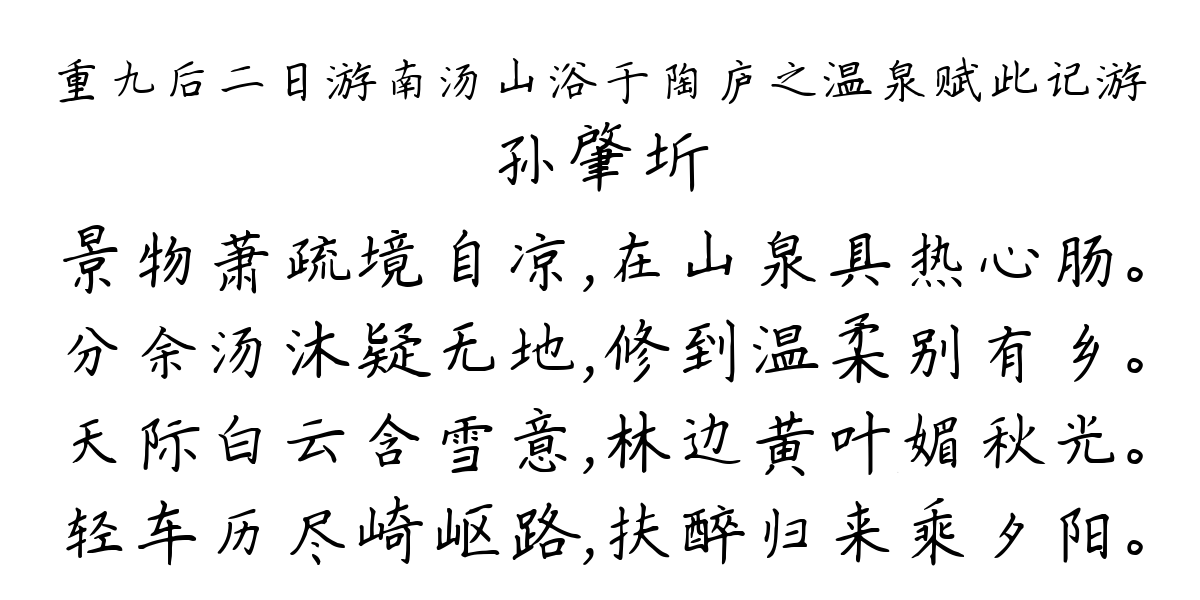 重九后二日游南汤山浴于陶庐之温泉赋此记游
孙肇圻
景物萧疏境自凉,在山泉具热心肠。
分余汤沐疑无地,修到温柔别有乡。
天际白云含雪意,林边黄叶媚秋光。
轻车历尽崎岖路,扶醉归来乘夕阳。